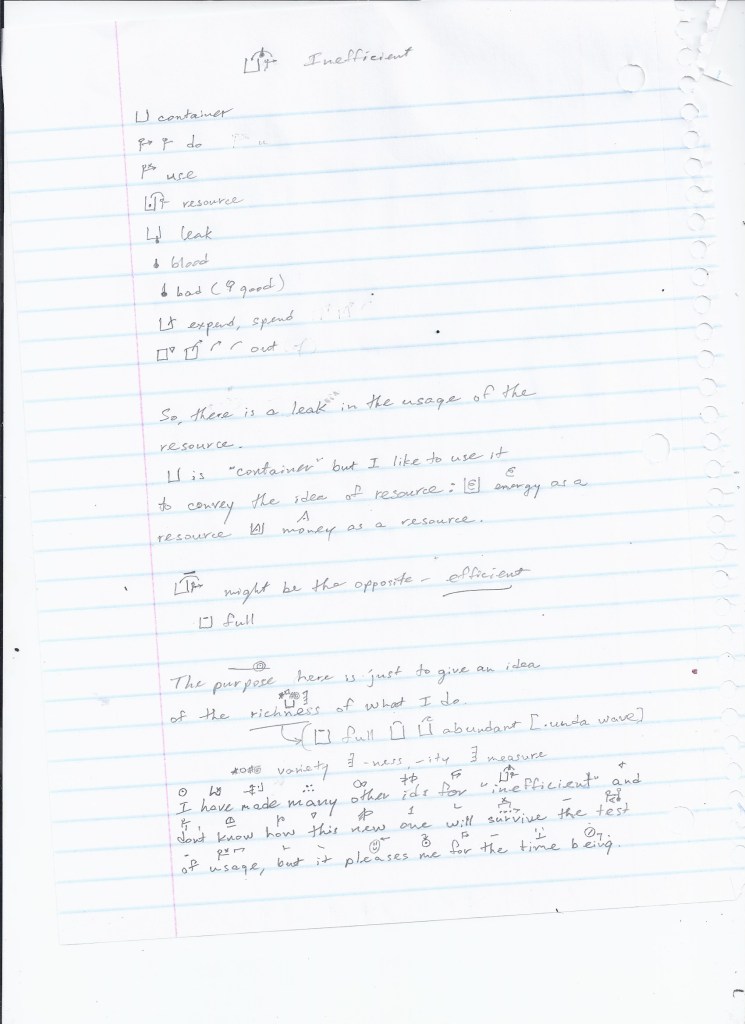 Inefficient
container
do
use
resource
leak
blood
bad ( good)
expend, spend
out
So, there is a leak in the usage of the
resource.
is "container" but I like to use it
to convey the idea of resource: energy as a
resource money as a resource.
might be the opposite - efficient
full
The purpose here is just to give an idea
of the richness of what I do.
full abundant [.unda wave]
variety -ness, -ity measure
I have made many other ids for "inefficient" and
don't know how this new one will survive the test
of usage, but it pleases me for the time being.